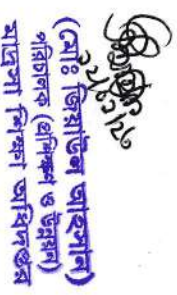 ২২/০২/২৬
(মোঃ জিয়াউল আহসান)
পরিচালক (প্রশিক্ষণ ও উন্নয়ন)
মাদ্রাসা শিক্ষা অধিদপ্তর